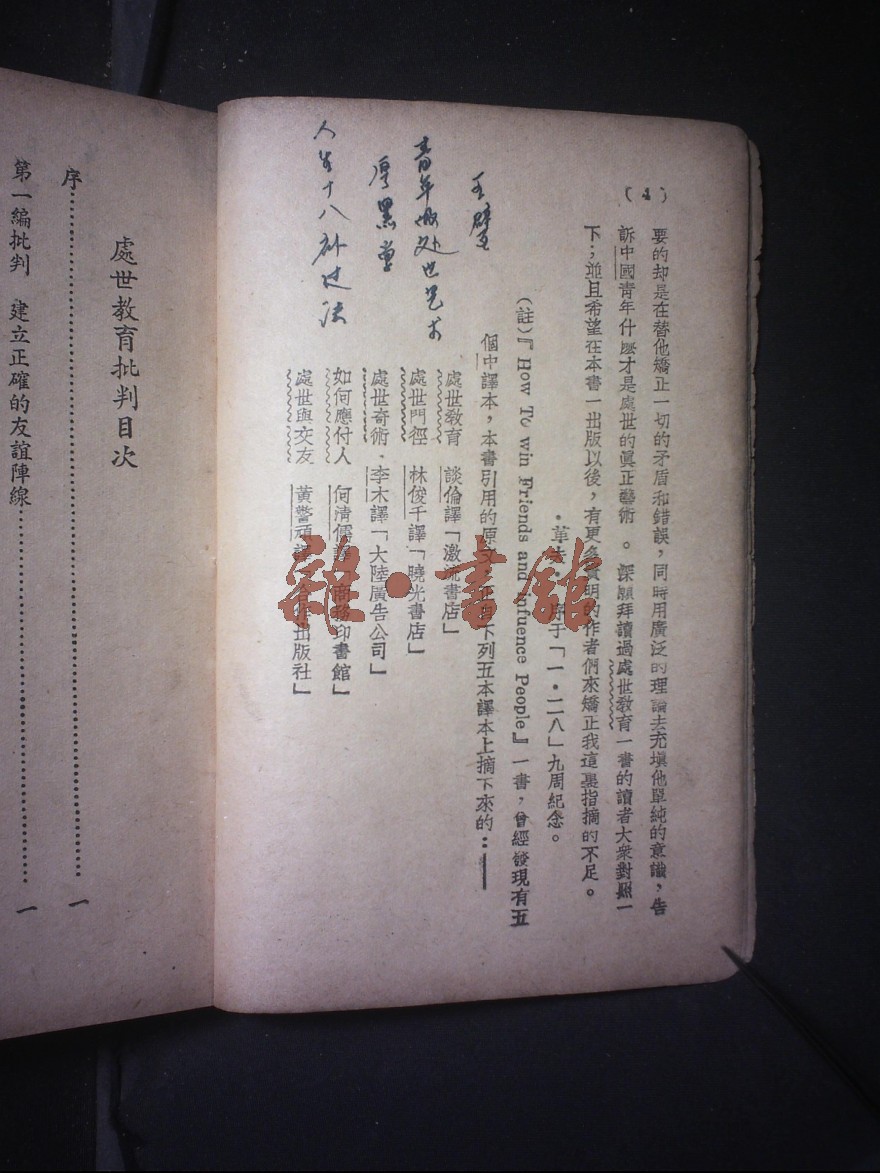 (4)
要的却是在替他矯正一切的矛盾和錯誤，同時用廣泛的理論去充塡他單純的意識，告
訴中國青年什麽才是處世的眞正藝術。深願拜讀過處世教育一書的讀者大衆對照一
下；並且希望在本書一出版以後，有更多賢明的作者們來矯正我這裏指摘的不足。
·革 序于「一·二八」九周紀念。
(註)『How To win Friends and Influence People』一書，曾經發現有五
個中譯本，本書引用的原文 下列五本譯本上摘下來的：——
處世教育 談倫譯「激流書店」
處世門徑 林俊千譯「曉光書店」
處世奇術·李木譯「大陸廣告公司」
如何應付人 何清儒譯「商務印書館」
處世與交友 黃警頑譯「合作出版社」
青年 处世艺术
厚黑
人生十八 法
雜·書館
處世教育批判目次
序…………一
第一編批判 建立正確的友誼陣線…………一